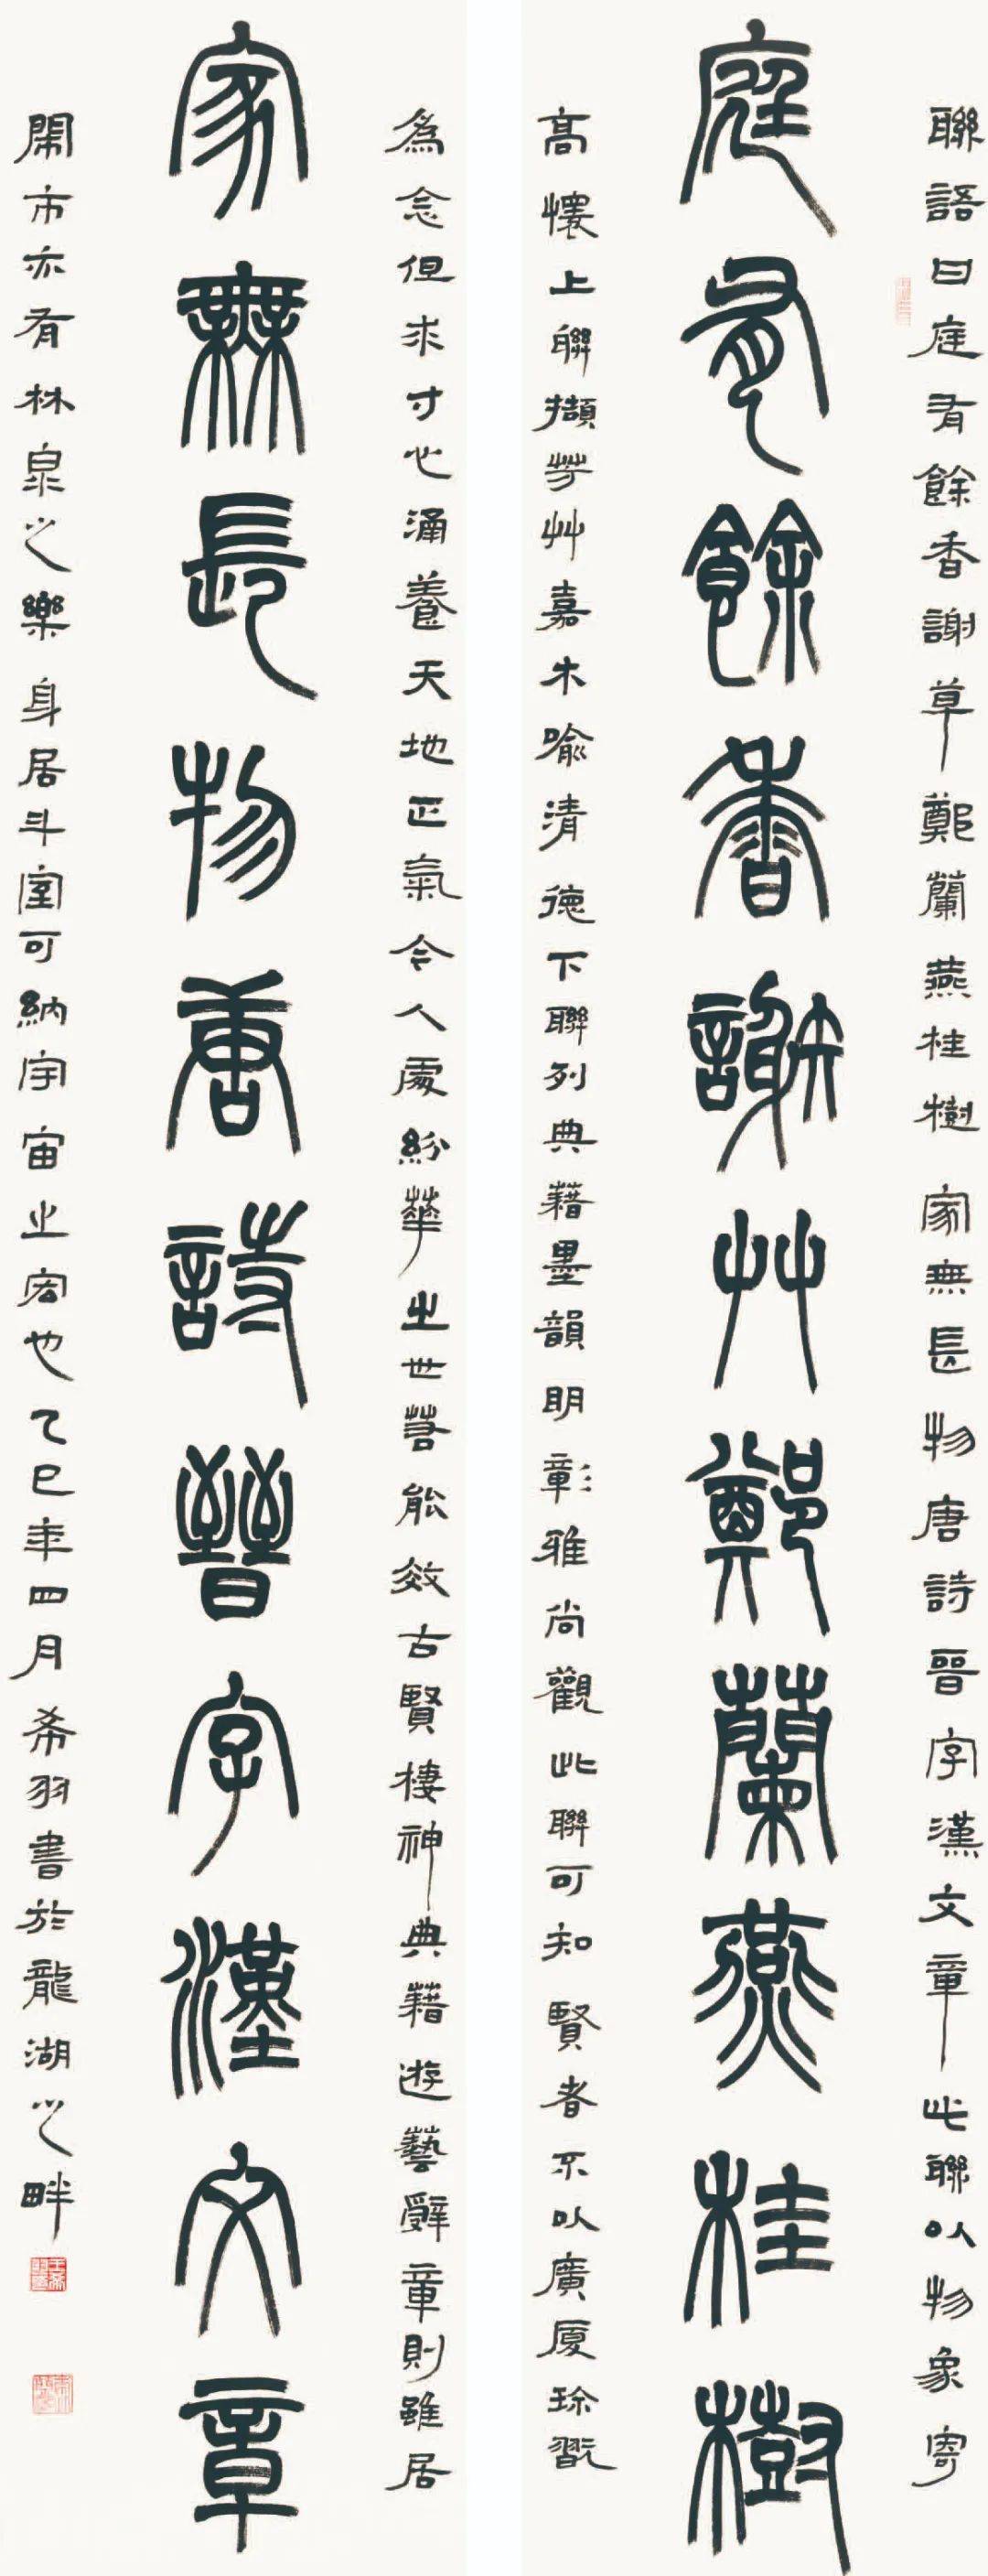 聯語曰庭有餘香謝草鄭蘭燕桂樹家無長物唐詩晉字漢文章此聯以物象寄
庭有餘香謝艸鄭蘭燕桂樹
高懷上聯擷芳艸嘉木喻清德下聯列典藉墨韻明彰雅尚觀此聯可知賢者不以廣廈珍翫
為念但求寸心涵養天地正氣今人處紛華之世若能效古賢棲神典藉遊藝辭章則雖居
家無長物唐詩晉字漢文章
鬧市亦有林泉之樂身居斗室可納宇宙之宏也乙巳年四月希羽書於龍湖之畔